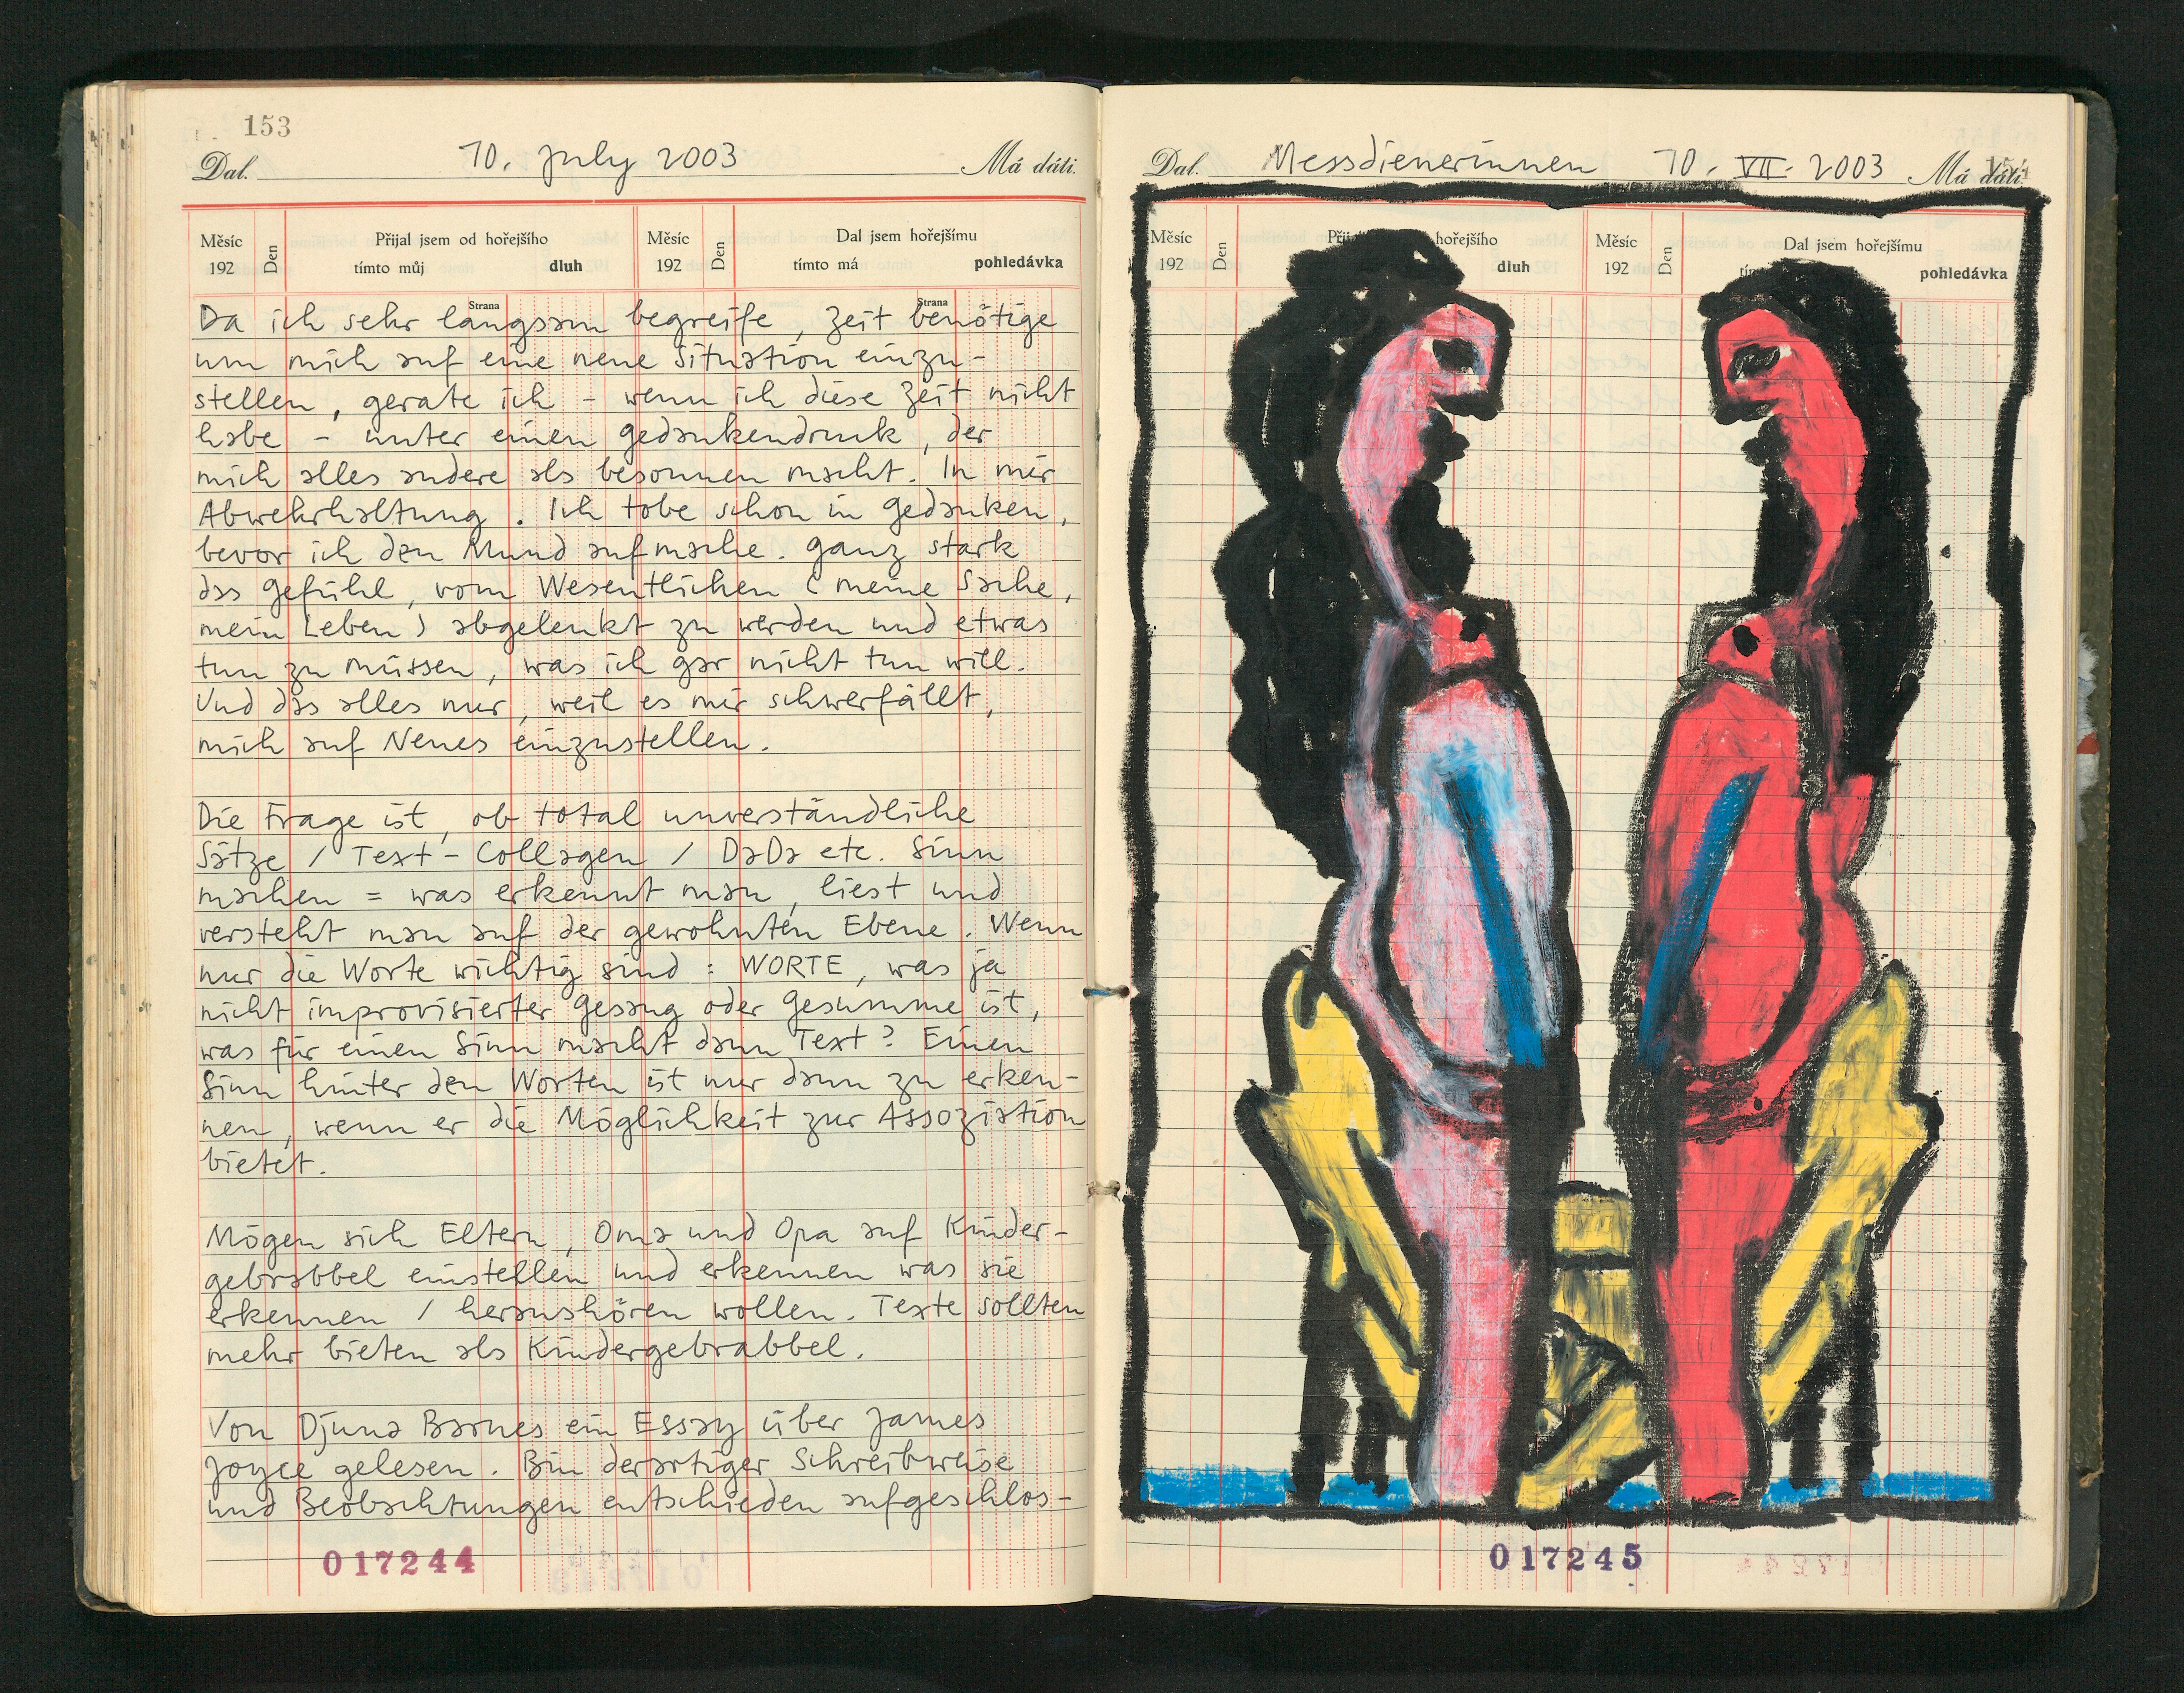 153
Dal. 10. July 2003 Má dáti.
Měsíc 192 Den Přijal jsem od hořejšího tímto můj dluh Měsíc 192 Den Dal jsem hořejšímu tímto má pohledávka
Strana Strana
Da ich sehr langsam begreife, Zeit benötige
um mich auf eine neue Situation einzu-
stellen, gerate ich - wenn ich diese Zeit nicht
habe - unter einen Gedankendruck, der
mich alles andere als besonnen macht. In mir
Abwehrhaltung. Ich tobe schon in Gedanken,
bevor ich den Mund aufmache. Ganz stark
das Gefühl, vom Wesentlichen (meine Sache,
mein Leben) abgelenkt zu werden und etwas
tun zu müssen, was ich gar nicht tun will.
Und das alles nur, weil es mir schwerfällt,
mich auf Neues einzustellen.
Die Frage ist, ob total unverständliche
Sätze / Text-Collagen / DaDa etc. Sinn
machen = was erkennt man, liest und
versteht man auf der gewohnten Ebene. Wenn
nur die Worte wichtig sind: WORTE, was ja
nicht improvisierter Gesang oder Gesumme ist,
was für einen Sinn macht dann Text? Einen
Sinn hinter den Worten ist nur dann zu erken-
nen, wenn er die Möglichkeit zur Assoziation
bietet.
Mögen sich Eltern, Oma und Opa auf Kinder-
gebrabbel einstellen und erkennen was sie
erkennen / heraushören wollen. Texte sollten
mehr bieten als Kindergebrabbel.
Von Djuna Barnes ein Essay über James
Joyce gelesen. Bin derartiger Schreibweise
und Beobachtungen entschieden aufgeschlos-
017244
Dal. Messdienerinnen 10. VII. 2003 Má dáti.
Měsíc 192 Den hořejšího dluh Měsíc 192 Den Dal jsem hořejšímu pohledávka
017245